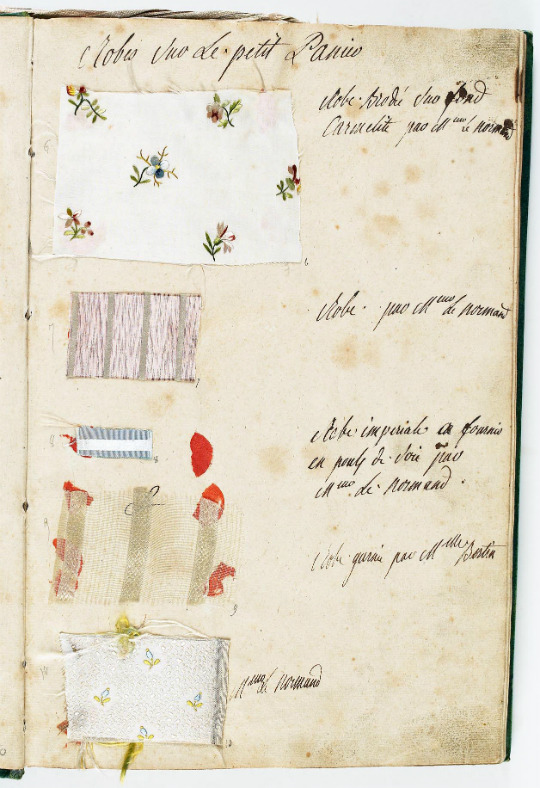 Robes Sur Le petit Panier
6
Robe Brodé Sur fond
Carmelite par Mme le Normand
6
7
Robe par Mme le Normand
7
8
Robe imperiale en fournie
en pouls de Soie par
Mme le Normand.
8
9
Robe garnie par Melle Bertin
9
10
Mme le Normand
10